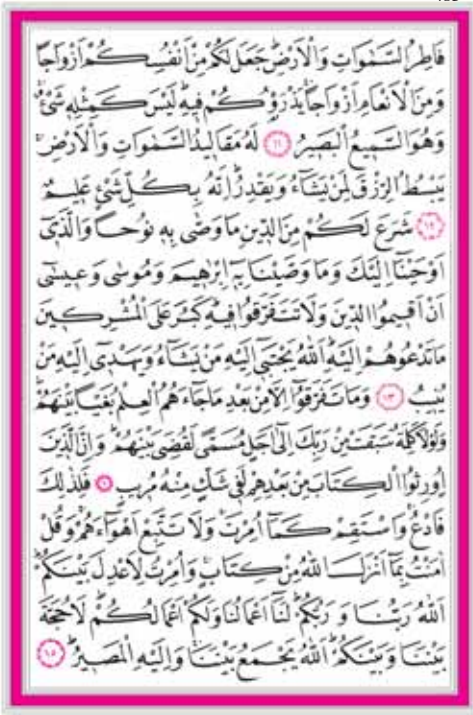 فَاطِرُ السَّمٰوَاتِ وَالْاَرْضِ جَعَلَ لَكُمْ مِنْ اَنْفُسِكُمْ اَزْوَاجًا
وَمِنَ الْاَنْعَامِ اَزْوَاجًا يَذْرَؤُكُمْ فِيهِ لَيْسَ كَمِثْلِهِ شَيْءٌ
وَهُوَ السَّمِيعُ الْبَصِيرُ ﴿١١﴾ لَهُ مَقَالِيدُ السَّمٰوَاتِ وَالْاَرْضِ
يَبْسُطُ الرِّزْقَ لِمَنْ يَشَاءُ وَيَقْدِرُ اِنَّهُ بِكُلِّ شَيْءٍ عَلِيمٌ
﴿١٢﴾ شَرَعَ لَكُمْ مِنَ الدِّينِ مَا وَصّٰى بِهِ نُوحًا وَالَّذِى
اَوْحَيْنَا اِلَيْكَ وَمَا وَصَّيْنَا بِهِ اِبْرٰهِيمَ وَمُوسٰى وَعِيسٰى
اَنْ اَقِيمُوا الدِّينَ وَلَا تَتَفَرَّقُوا فِيهِ كَبُرَ عَلَى الْمُشْرِكِينَ
مَا تَدْعُوهُمْ اِلَيْهِ اَللّٰهُ يَجْتَبِى اِلَيْهِ مَنْ يَشَاءُ وَيَهْدِى اِلَيْهِ مَنْ
يُنِيبُ ﴿١٣﴾ وَمَا تَفَرَّقُوا اِلَّا مِنْ بَعْدِ مَا جَاءَهُمُ الْعِلْمُ بَغْيًا بَيْنَهُمْ
وَلَوْلَا كَلِمَةٌ سَبَقَتْ مِنْ رَبِّكَ اِلٰى اَجَلٍ مُسَمًّى لَقُضِىَ بَيْنَهُمْ وَاِنَّ الَّذِينَ
اُورِثُوا الْكِتَابَ مِنْ بَعْدِهِمْ لَفِى شَكٍّ مِنْهُ مُرِيبٍ فَلِذٰلِكَ
فَادْعُ وَاسْتَقِمْ كَمَا اُمِرْتَ وَلَا تَتَّبِعْ اَهْوَاءَهُمْ وَقُلْ
اٰمَنْتُ بِمَا اَنْزَلَ اللّٰهُ مِنْ كِتَابٍ وَاُمِرْتُ لِاَعْدِلَ بَيْنَكُمْ
اَللّٰهُ رَبُّنَا وَرَبُّكُمْ لَنَا اَعْمَالُنَا وَلَكُمْ اَعْمَالُكُمْ لَا حُجَّةَ
بَيْنَنَا وَبَيْنَكُمْ اَللّٰهُ يَجْمَعُ بَيْنَنَا وَاِلَيْهِ الْمَصِيرُ ﴿١٥﴾